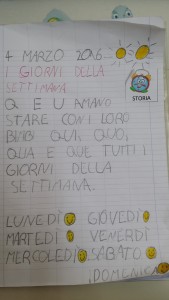 4 MARZO 2026
I GIORNI DELLA
SETTIMANA.
Q E U AMANO
STARE CON I LORO
BIMBI QUI, QUO,
QUA E QUE TUTTI I
GIORNI DELLA
SETTIMANA.
STORIA
LUNEDÌ GIOVEDÌ
MARTEDÌ VENERDÌ
MERCOLEDÌ SABATO
DOMENICA